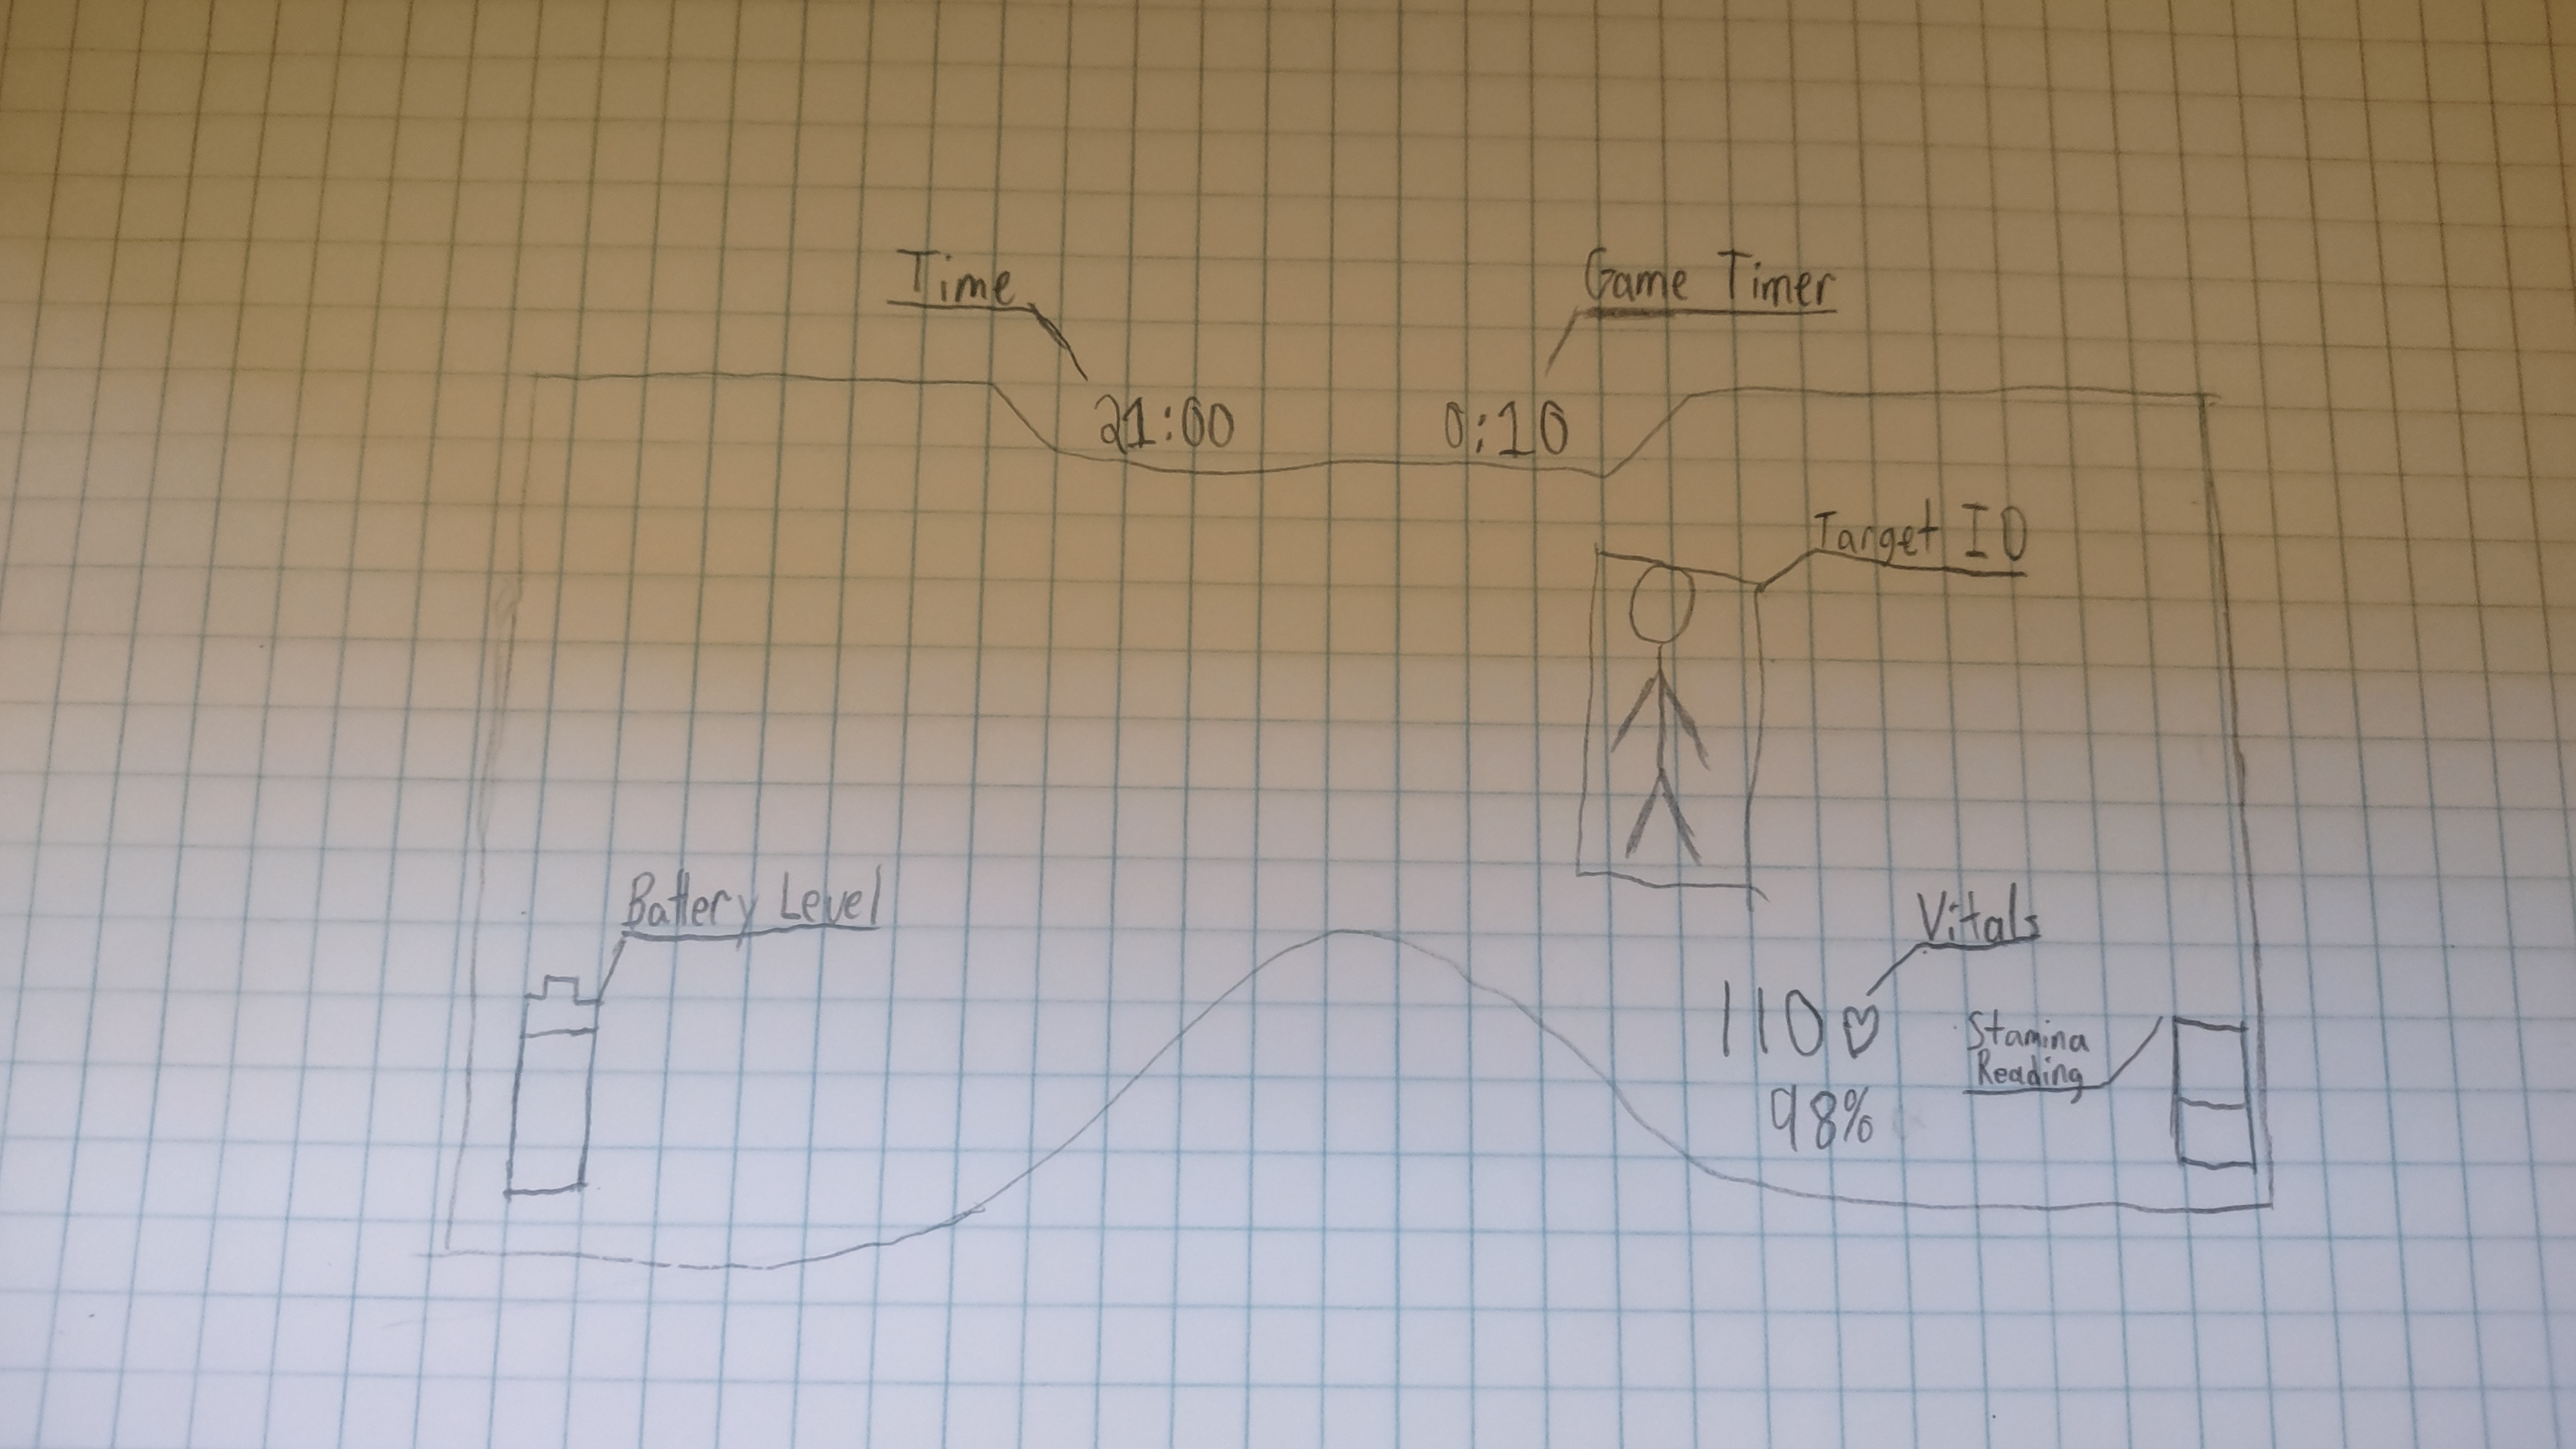 Time
Game Timer
21:00
0:10
Target ID
Battery Level
Vitals
110♡
Stamina
Reading
98%